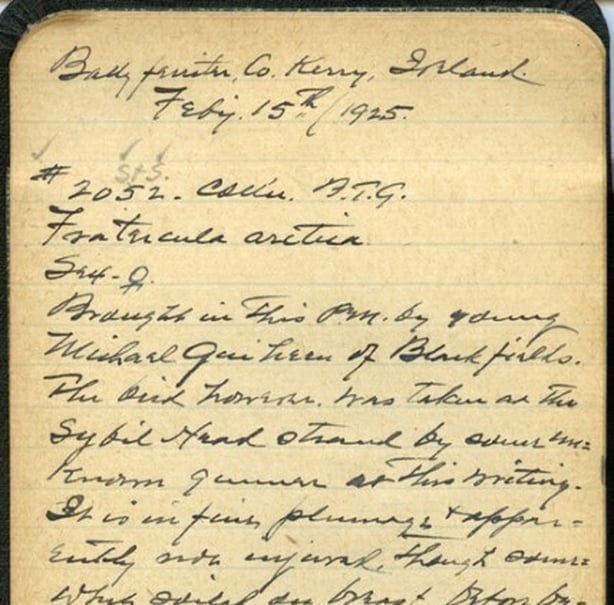 Ballyferriter, Co. Kerry, Ireland.
Feby. 15th/1925.
S+S.
# 2052. Colln. D.T.G.
Fratercula arctica
Sex- ♀.
Brought in this P.M. by young
Michael Guiheen of Blackfields.
The bird however, was taken at the
Sybil Head strand by some un=
known gunner at this writing.
It is in fine plumage & appar=
ently not injured, though some=
what soiled on breast